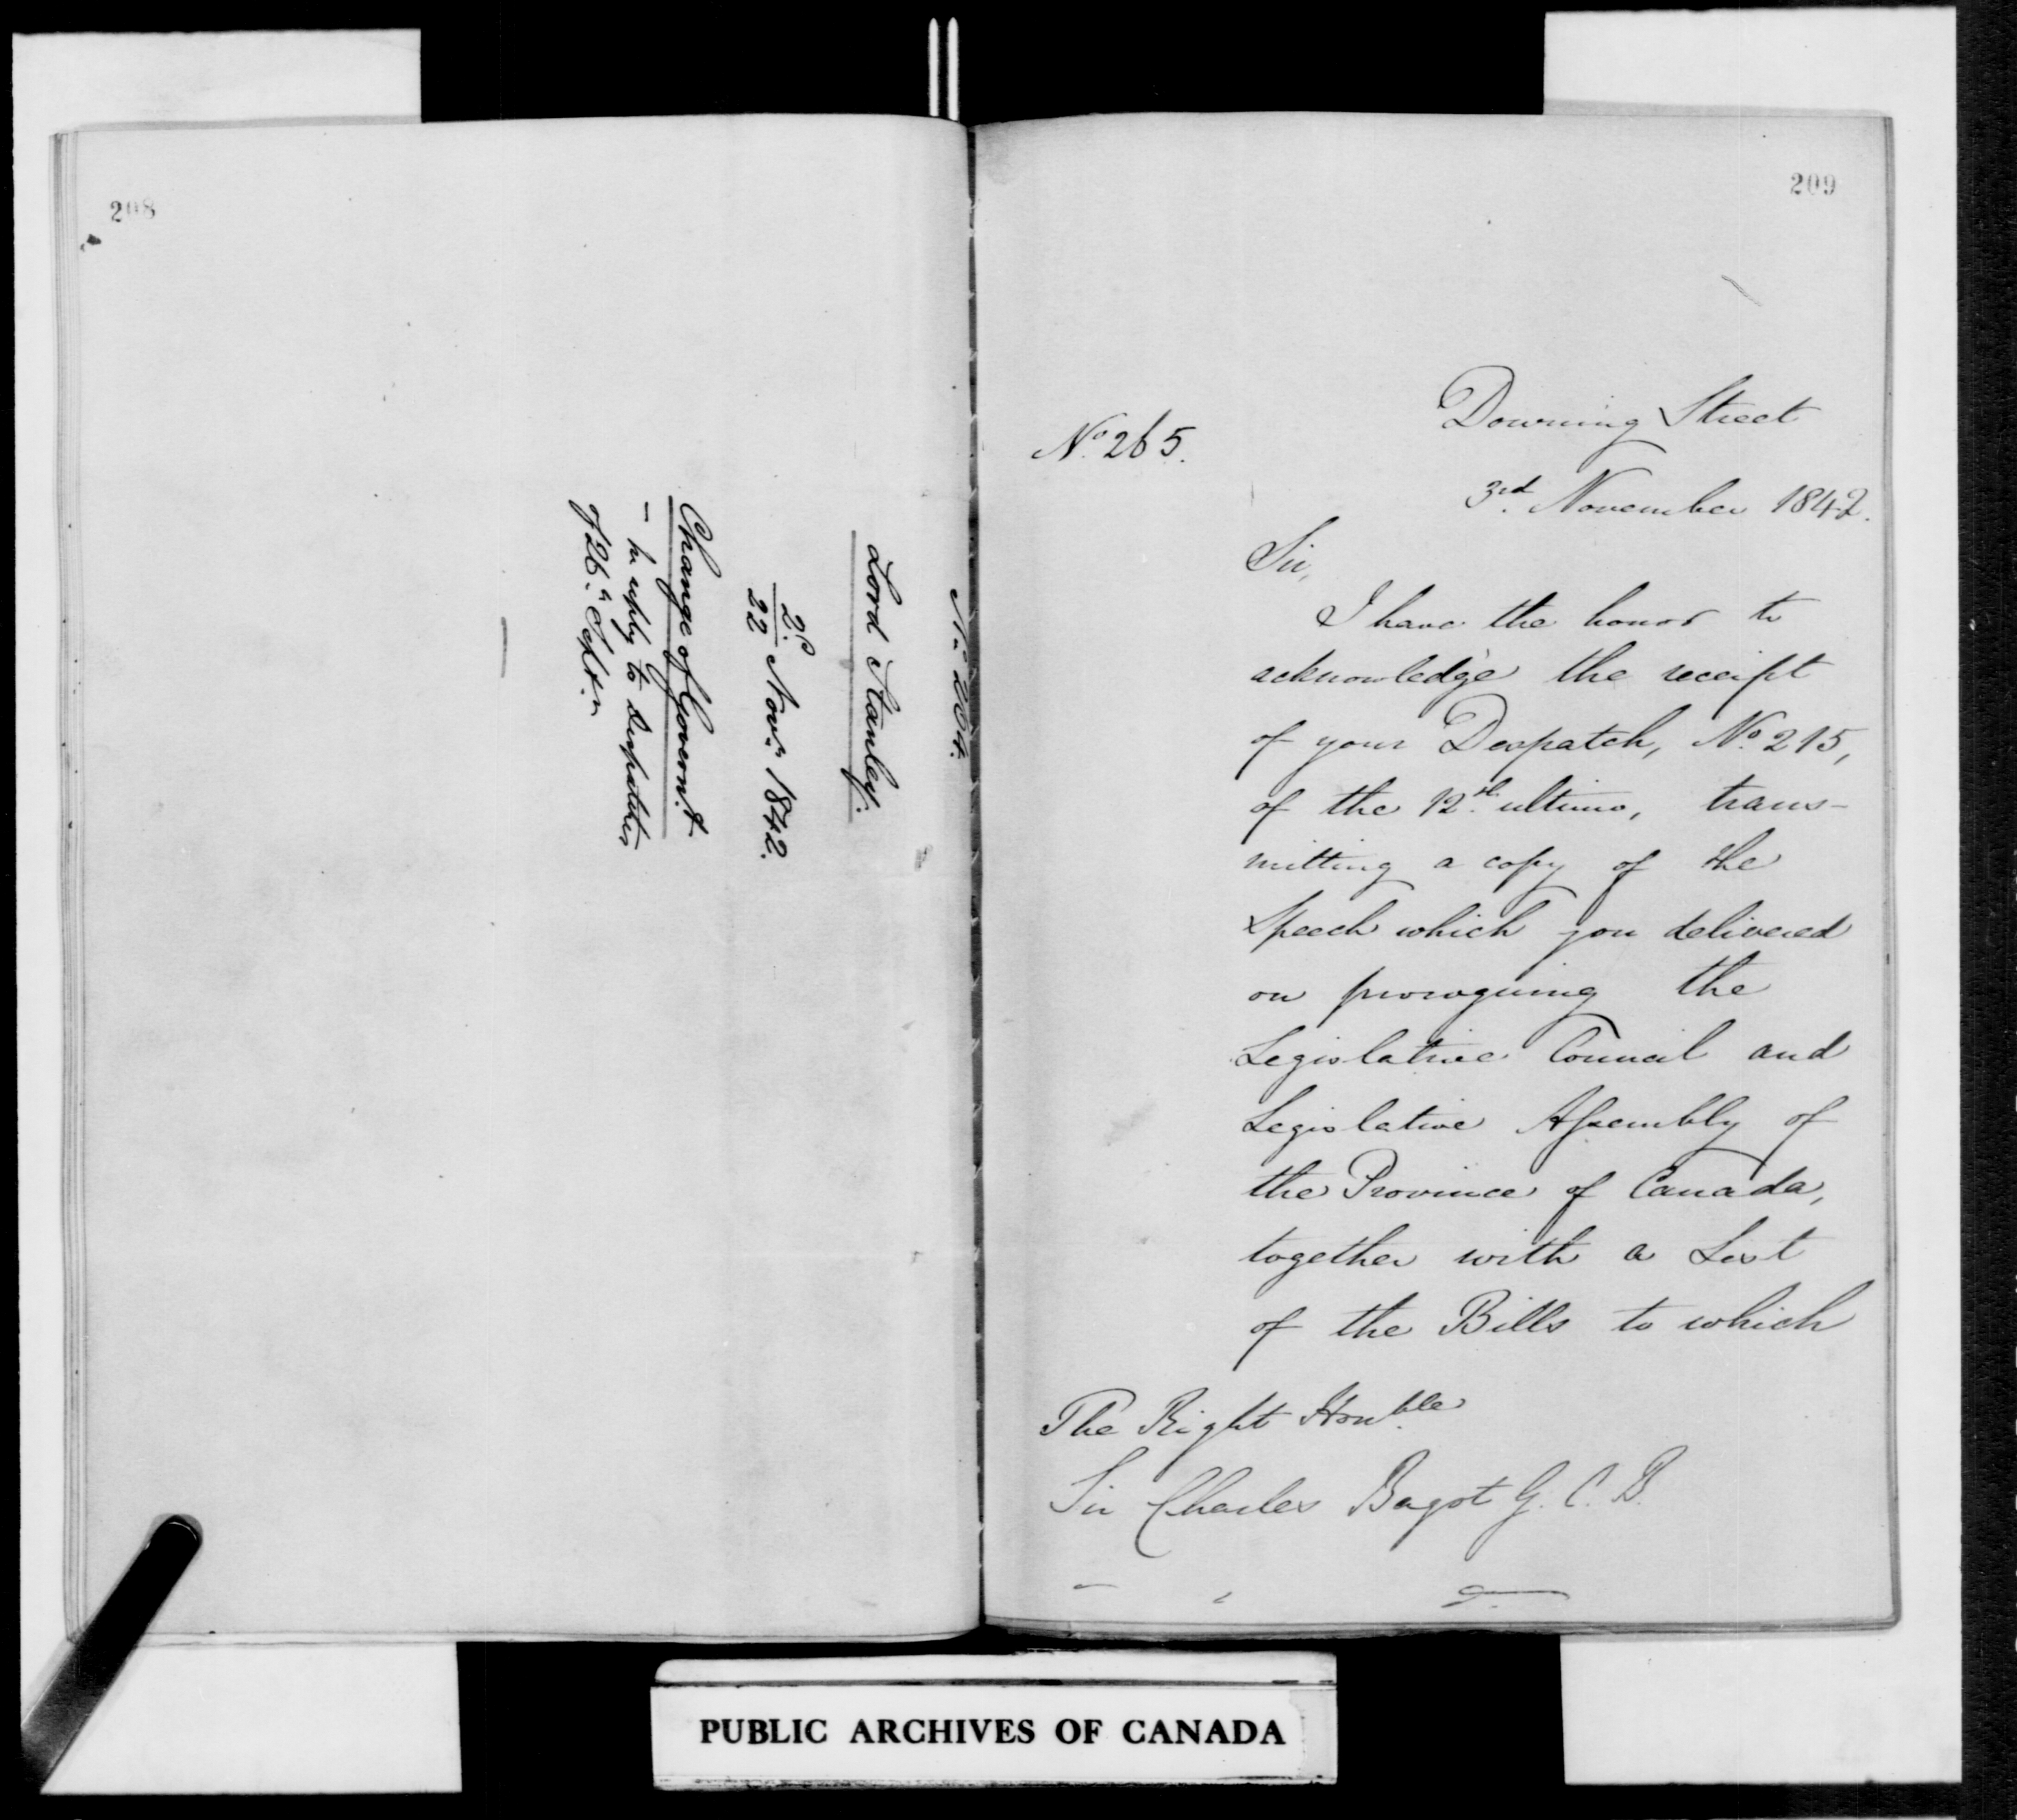 208
No. 264.
Lord Stanley.
2d.
22 Novr. 1842.
Change of Governt.
- In reply to Despatches
of 26th Septr.
209
No. 265.
Downing Street
3rd. November 1842.
Sir,
I have the honor to
acknowledge the receipt
of your Despatch, No. 215,
of the 12th. ultimo, trans-
mitting a copy of the
Speech which you delivered
on proroguing the
Legislative Council and
Legislative Assembly of
the Province of Canada,
together with a List
of the Bills to which
The Right Honble.
Sir Charles Bagot G. C. B.
PUBLIC ARCHIVES OF CANADA